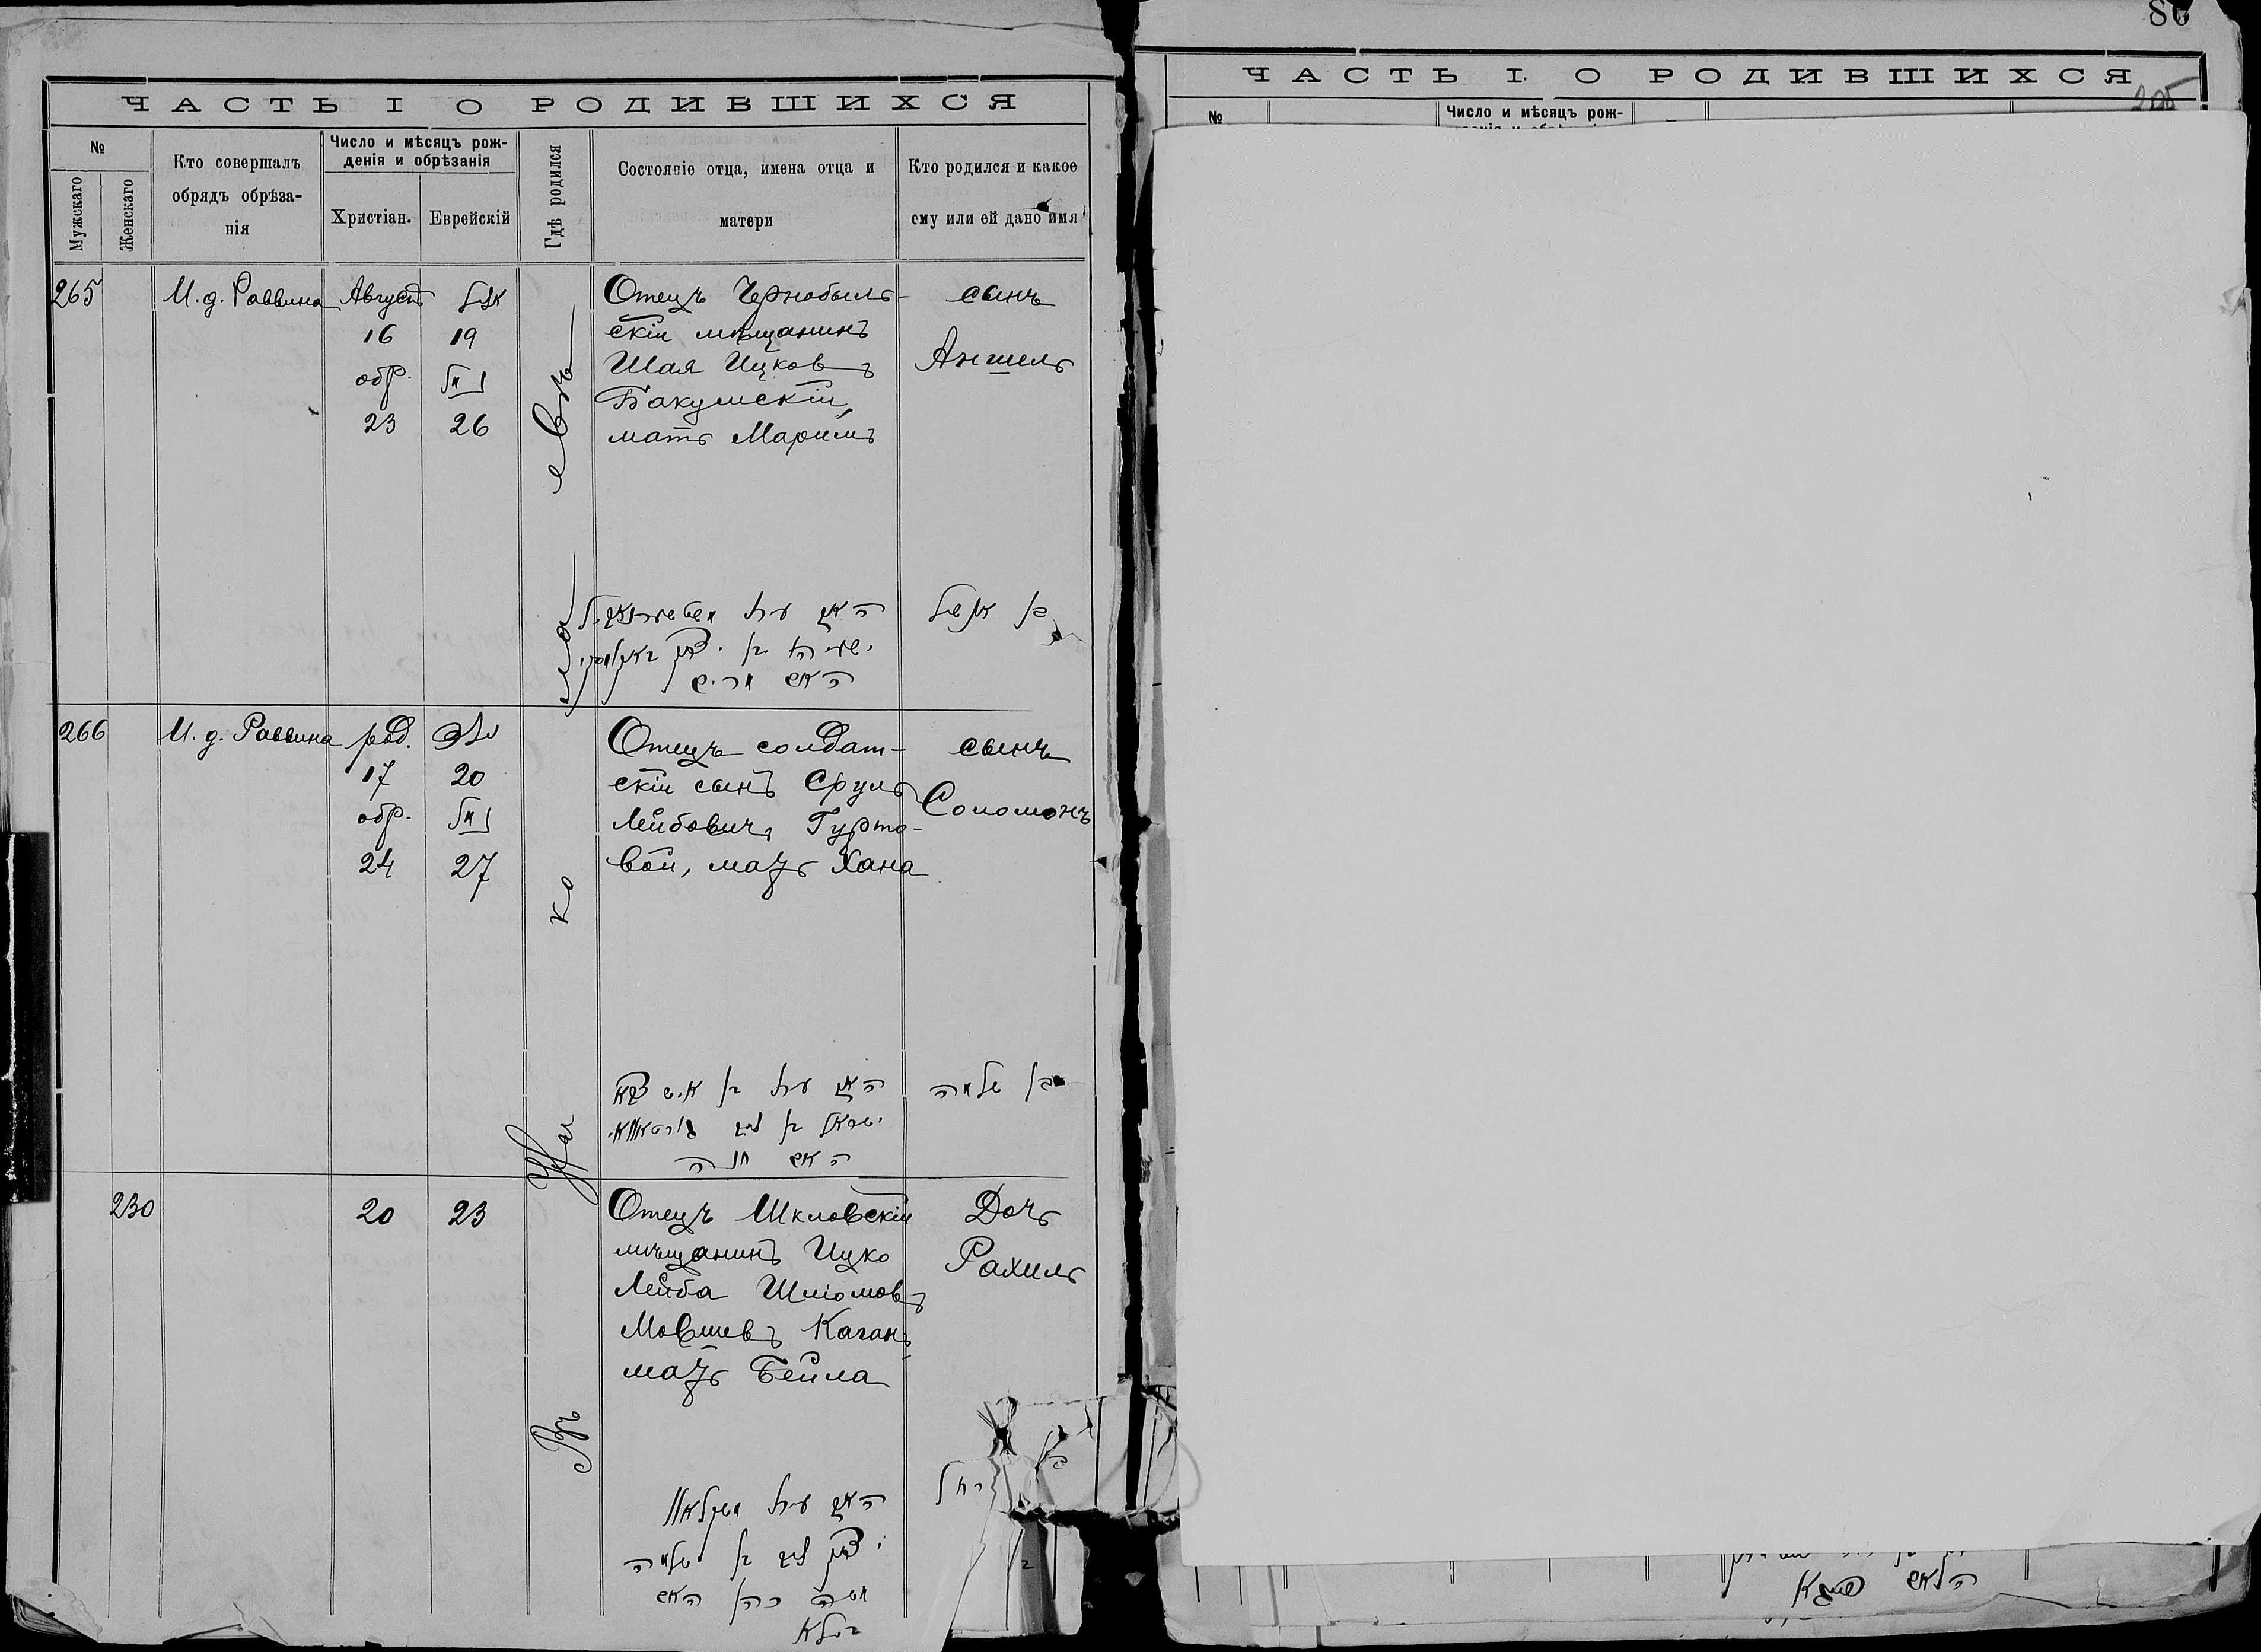 ЧАСТЬ I О РОДИВШИХСЯ
№
Мужскаго
Женскаго
Кто совершалъ
обрядъ обрѣза-
нія
Число и мѣсяцъ рож-
денія и обрѣзанія
Христіан.
Еврейскій
Гдѣ родился
Состояніе отца, имена отца и
матери
Кто родился и какое
ему или ей дано имя
265
И. д. Раввина
Августъ
16
обр.
23
19
26
Отецъ Чернобыль-
скій мѣщанинъ
Шая Ицковъ
Бакумскій,
мать Маримъ
сынъ
Аншель
האם מרים
266
И. д. Раввина
род.
17
обр.
24
20
27
Отецъ солдат-
скій сынъ Сруль
Лейбовичъ Гурто-
вой, мать Хана
сынъ
Соломонъ
בן שלמה
האם חנה
230
20
23
Отецъ Шкловскій
мѣщанинъ Ицко
Лейба Шліомовъ
Мовшевъ Каганъ
мать Бейла
Дочь
Рахиль
רחל
משה כהן האם
ביילא
86
205
ЧАСТЬ I. О РОДИВШИХСЯ
№
Число и мѣсяцъ рож-